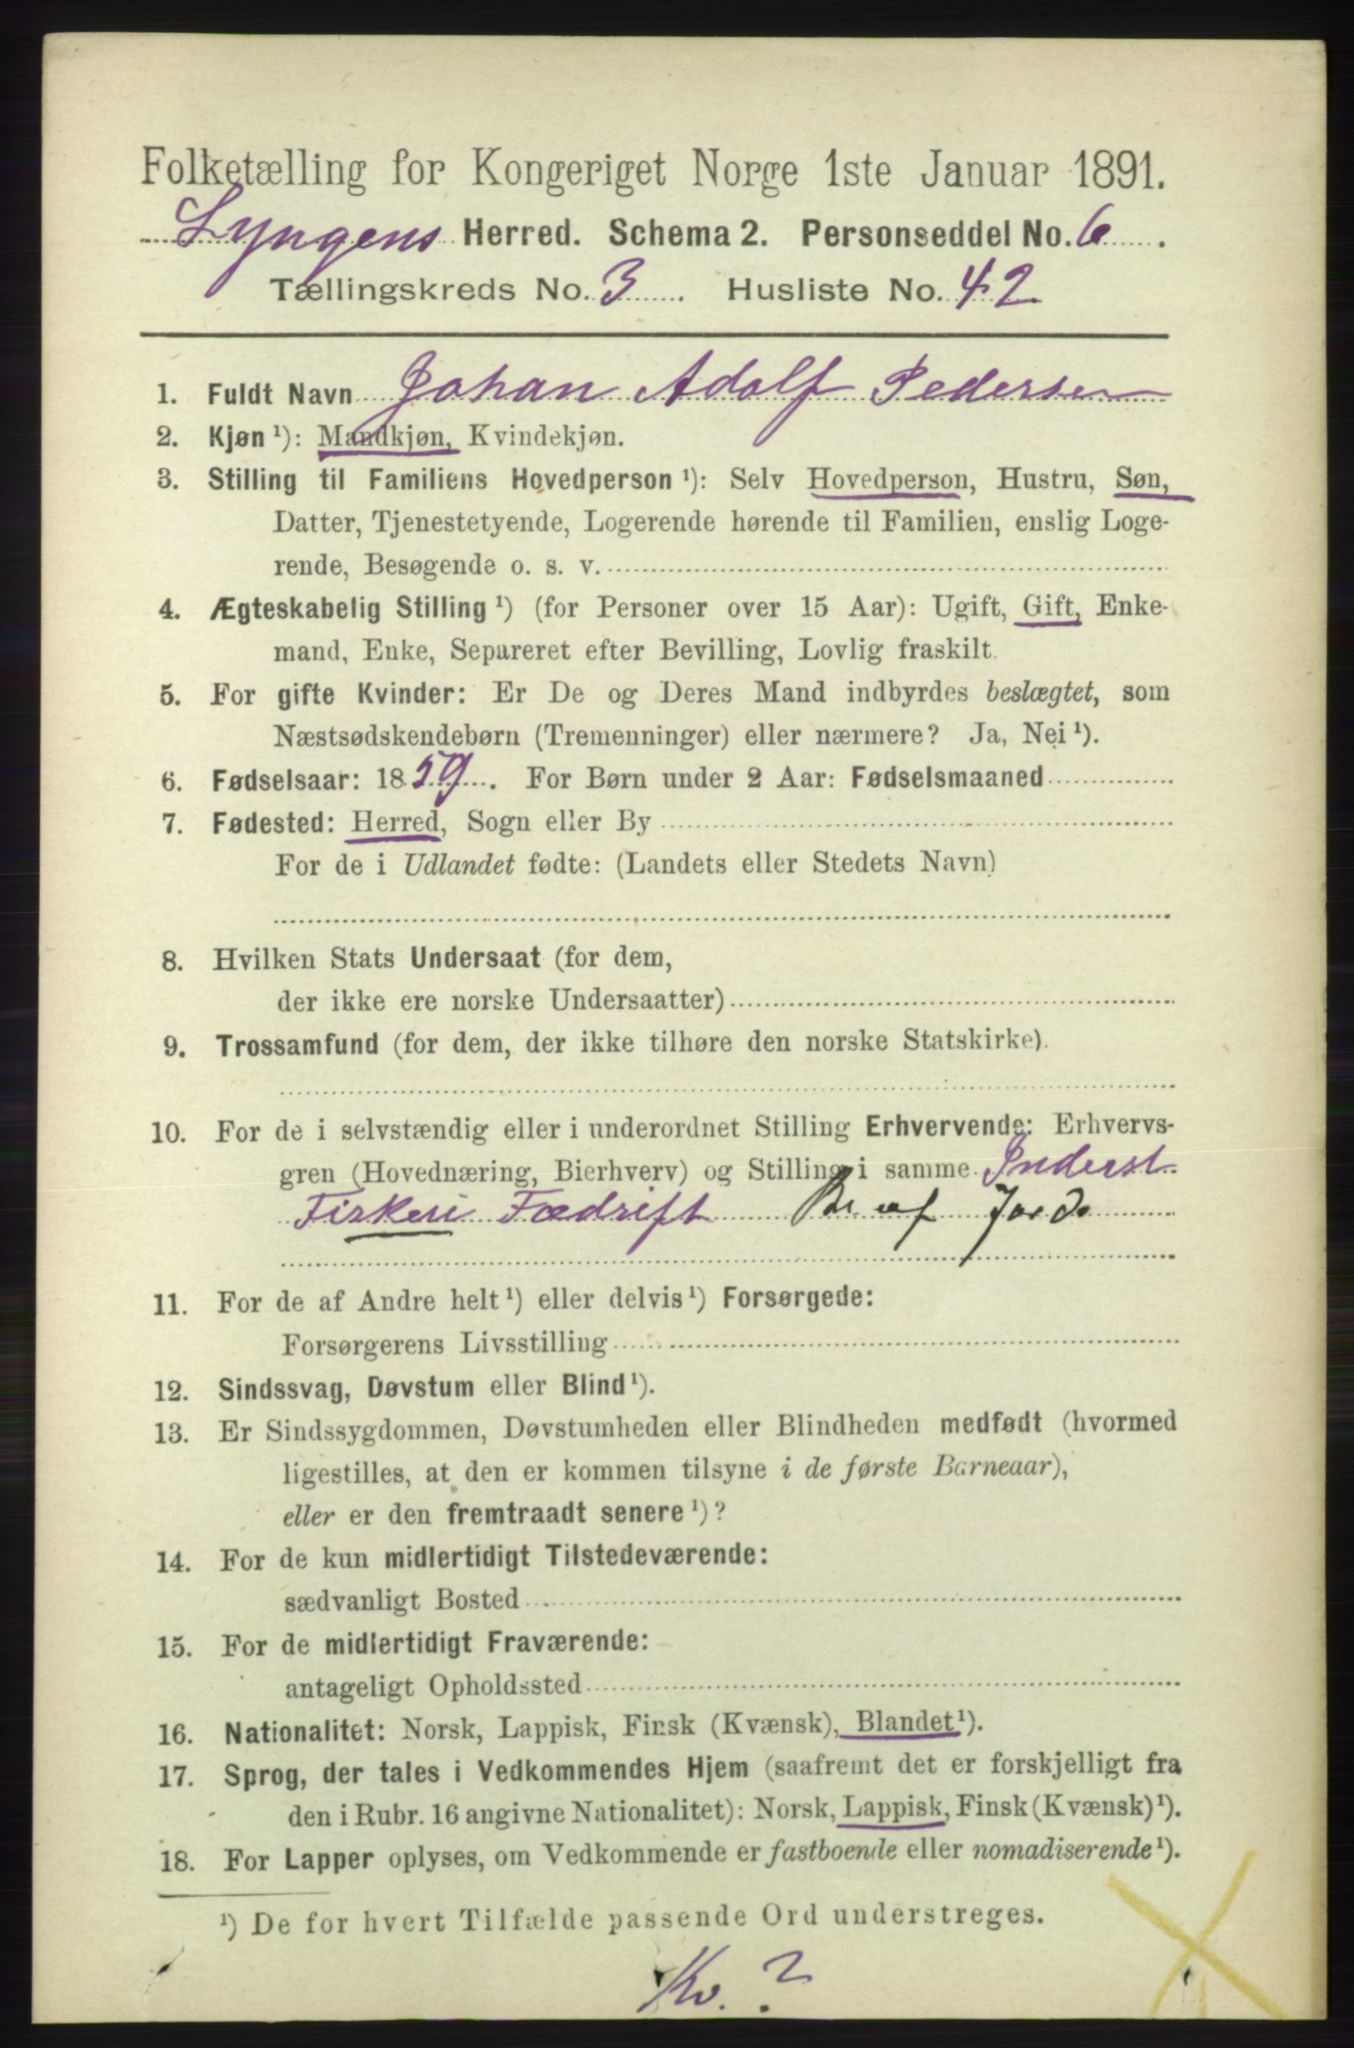 Folketælling for Kongeriget Norge 1ste Januar 1891.
Lyngens Herred. Schema 2. Personseddel No. 6.
Tællingskreds No. 3. Husliste No. 42
1. Fuldt Navn Johan Adolf Pedersen
2. Kjøn ¹): Mandkjøn, Kvindekjøn.
3. Stilling til Familiens Hovedperson ¹): Selv Hovedperson, Hustru, Søn,
Datter, Tjenestetyende, Logerende hørende til Familien, enslig Loge-
rende, Besøgende o. s. v.
4. Ægteskabelig Stilling ¹) (for Personer over 15 Aar): Ugift, Gift, Enke-
mand, Enke, Separeret efter Bevilling, Lovlig fraskilt.
5. For gifte Kvinder: Er De og Deres Mand indbyrdes beslægtet, som
Næstsødskendebørn (Tremenninger) eller nærmere? Ja, Nei ¹).
6. Fødselsaar: 1859. For Børn under 2 Aar: Fødselsmaaned
7. Fødested: Herred, Sogn eller By
For de i Udlandet fødte: (Landets eller Stedets Navn)
8. Hvilken Stats Undersaat (for dem,
der ikke ere norske Undersaatter)
9. Trossamfund (for dem, der ikke tilhøre den norske Statskirke).
10. For de i selvstændig eller i underordnet Stilling Erhvervende: Erhvervs-
gren (Hovednæring, Bierhverv) og Stilling i samme Inderst
Fiskeri Fædrift Br af Jord
11. For de af Andre helt ¹) eller delvis ¹) Forsørgede:
Forsørgerens Livsstilling
12. Sindssvag, Døvstum eller Blind ¹).
13. Er Sindssygdommen, Døvstumheden eller Blindheden medfødt (hvormed
ligestilles, at den er kommen tilsyne i de første Barneaar),
eller er den fremtraadt senere ¹)?
14. For de kun midlertidigt Tilstedeværende:
sædvanligt Bosted
15. For de midlertidigt Fraværende:
antageligt Opholdssted
16. Nationalitet: Norsk, Lappisk, Finsk (Kvænsk), Blandet ¹).
17. Sprog, der tales i Vedkommendes Hjem (saafremt det er forskjelligt fra
den i Rubr. 16 angivne Nationalitet): Norsk, Lappisk, Finsk (Kvænsk) ¹).
18. For Lapper oplyses, om Vedkommende er fastboende eller nomadiserende ¹).
¹) De for hvert Tilfælde passende Ord understreges.
Kv. ?